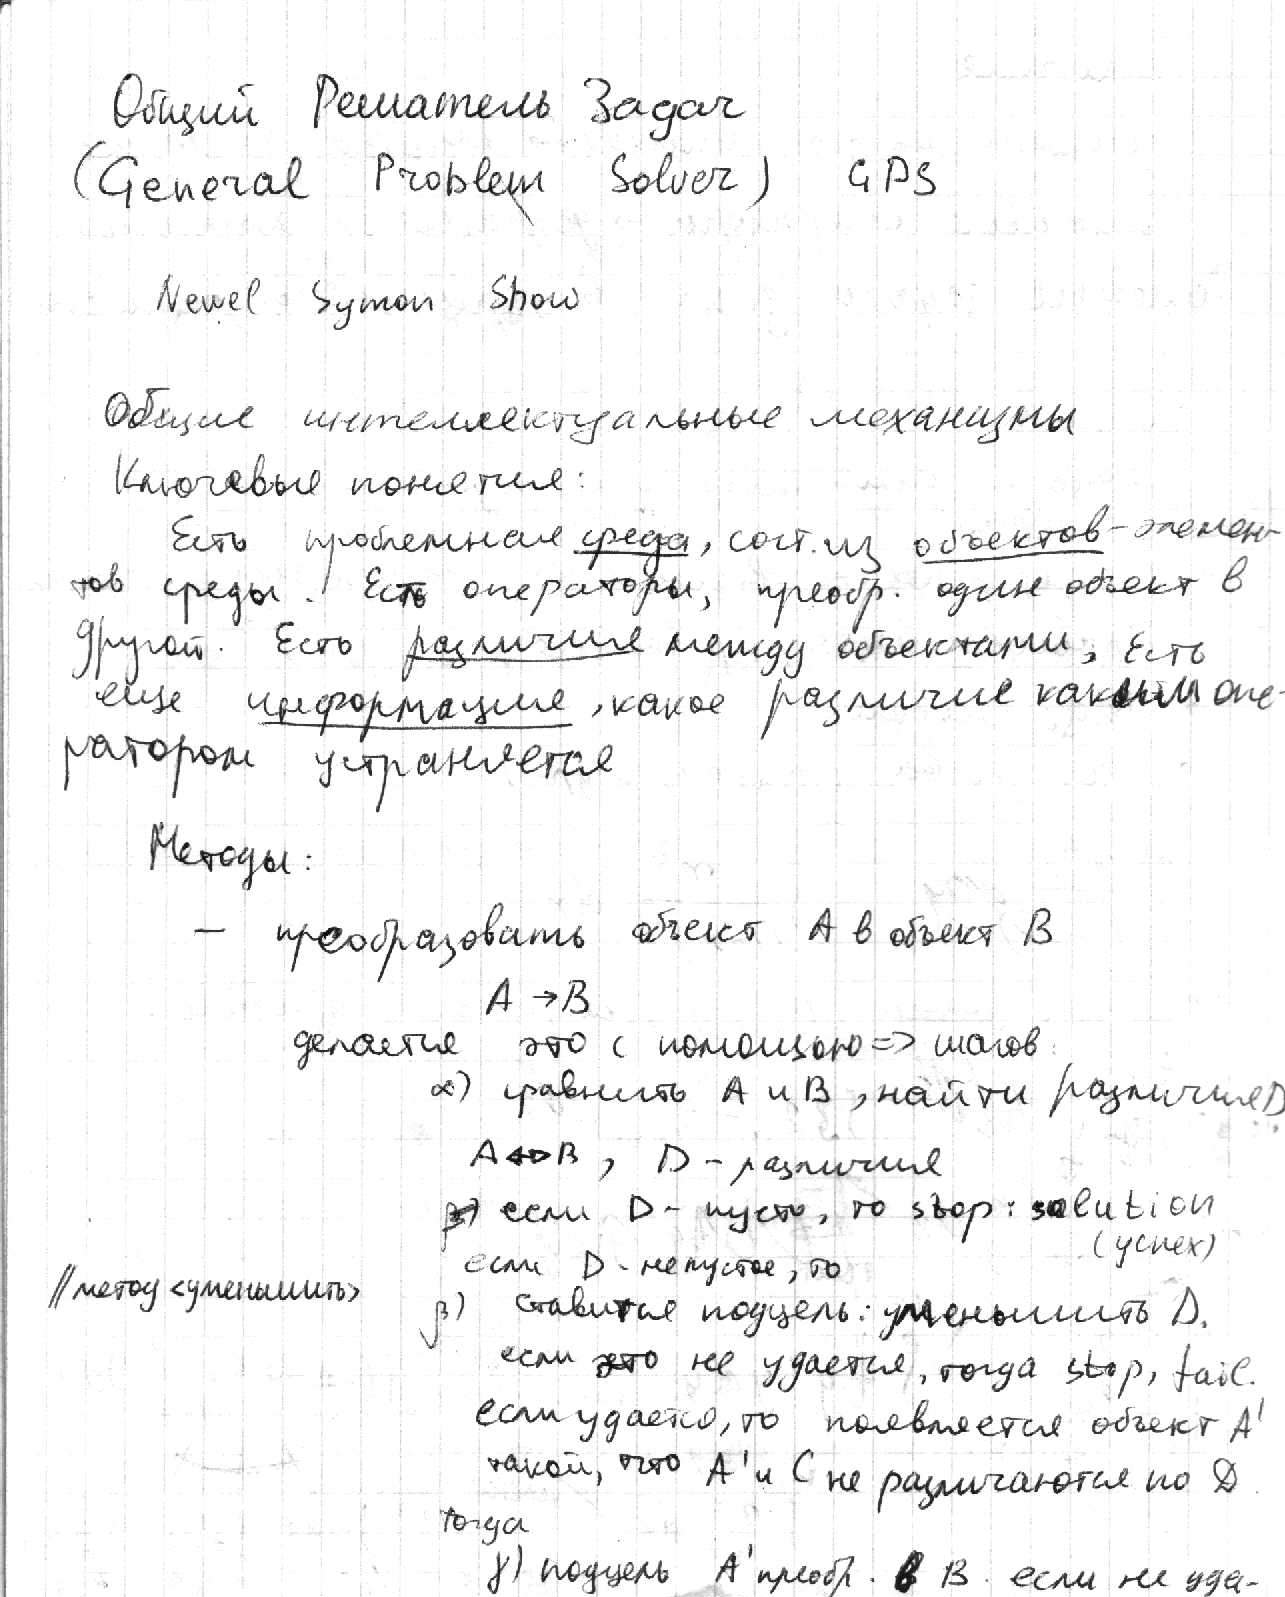 Общий Решатель Задач
(General Problem Solver) GPS
Newel Symon Show
Общие интеллектуальные механизмы
Ключевые понятия:
Есть проблемная среда, сост. из объектов - элемен-
тов среды. Есть операторы, преобр. один объект в
другой. Есть различия между объектами, Есть
еще информация, какое различие каким опе-
ратором устраняется
Методы:
— преобразовать объект А в объект В
А → В
делается это с помощью => шагов
α) сравнить А и В, найти различия D
A <=> B, D - различия
если D - пусто, то stop: solution
(успех)
если D - непустое, то
//метод <уменьшить>
β) ставится подцель: уменьшить D.
если это не удается, тогда stop, fail.
если удается, то появляется объект A'
такой, что A' и C не различаются по D
тогда
γ) подцель A' преобр. в B. если не уда-